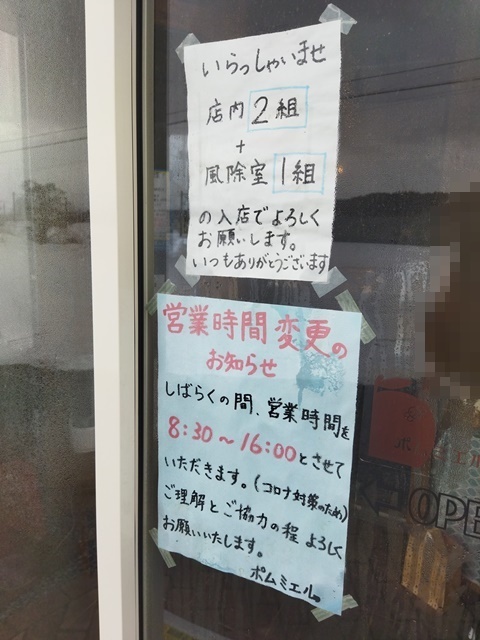 いらっしゃいませ
店内 2組
+
風除室 1組
の入店でよろしく
お願いします。
いつもありがとうございます
営業時間変更の
お知らせ
しばらくの間、営業時間を
8:30～16:00とさせて
いただきます。(コロナ対策のため)
ご理解とご協力の程よろしく
お願いいたします。
ポムミエル。
OPE